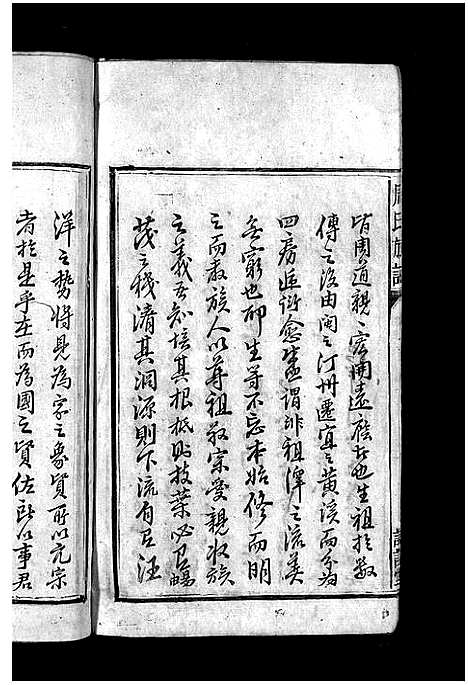 皆周道親親宏開遠族者也生祖於數
傳之後由閩之汀州遷宜之黃溪而分為
四房延衍愈盛謂非祖澤之流奕
無窮也耶生等不忘本始修而明
之而教族人以尊祖敬宗愛親收族
之義吾知培其根柢則枝葉必暢
茂之後清其洞源則下流自巨汪
洋之勢將見為家之象賢所以元宗
者於是乎在而為國之賢佐所以事君
周氏族譜